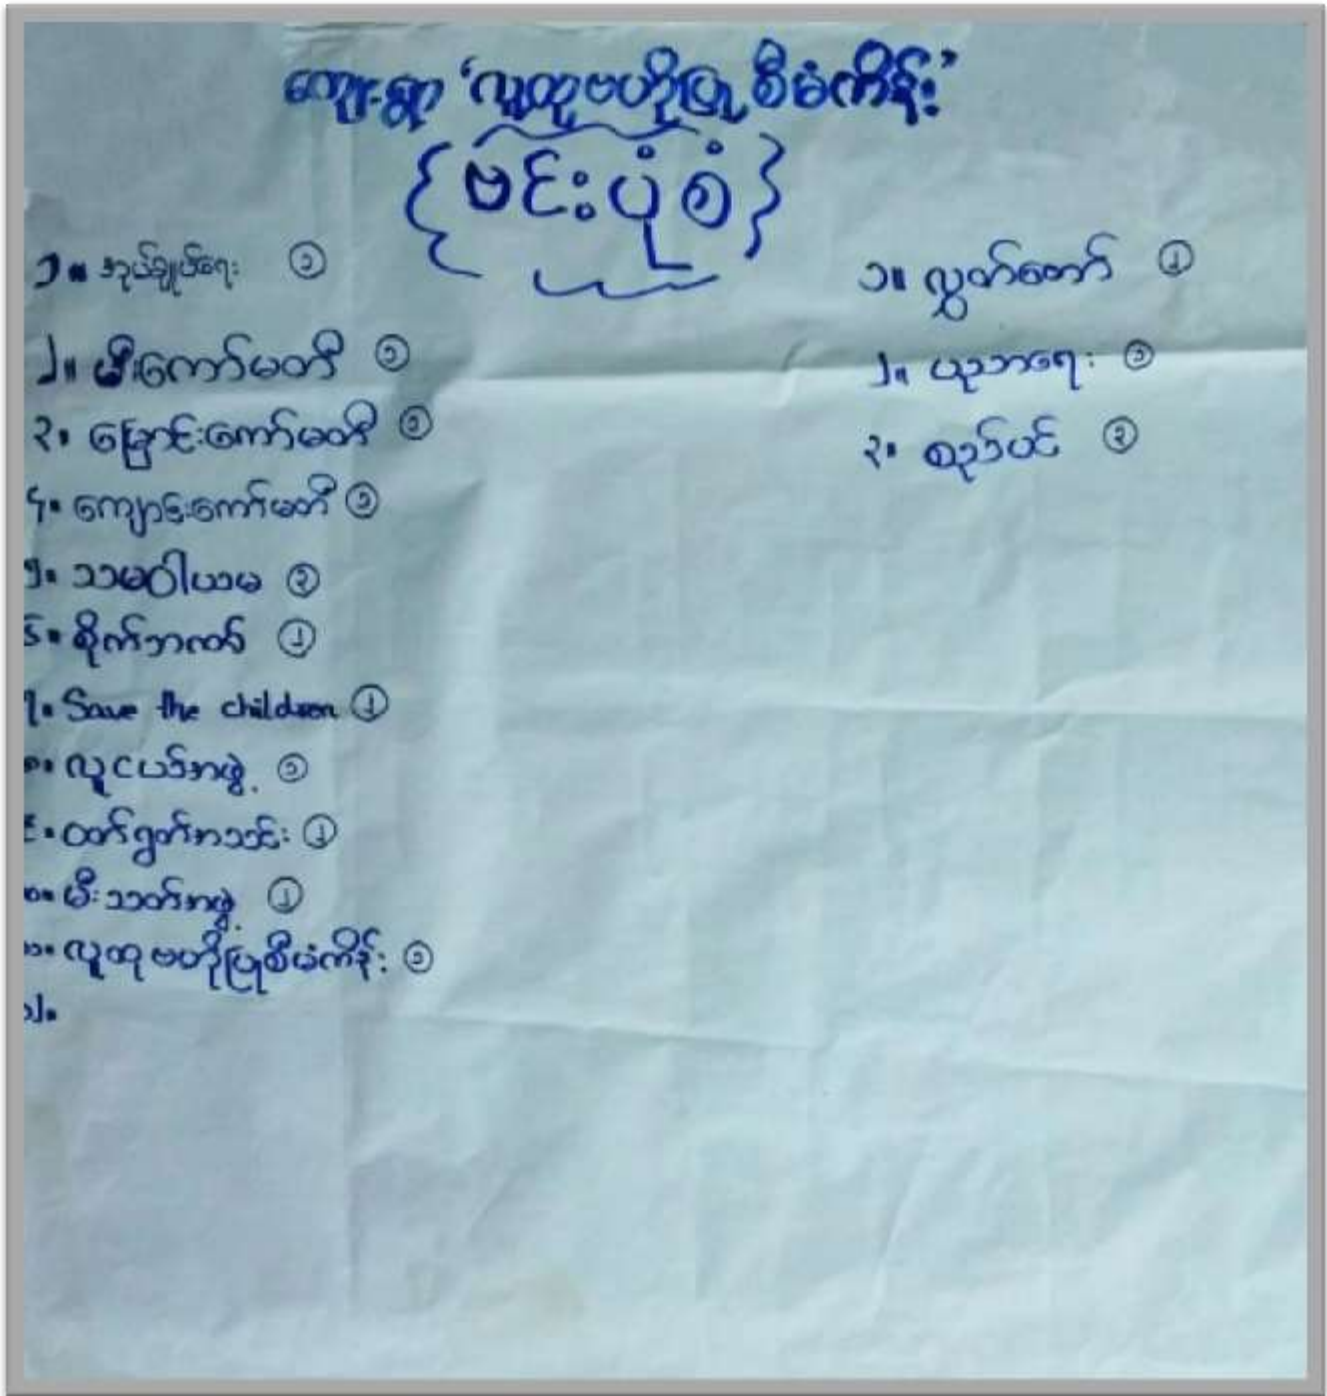 ကျေးရွာ ‘လူထုဗဟိုပြု စီမံကိန်း’
{ဗင်းပုံစံ}
၁။ အုပ်ချုပ်ရေး ၁
၂။ မီးကော်မတီ ၁
၃။ မြောင်းကော်မတီ ၁
၄။ ကျောင်းကော်မတီ ၁
၅။ သမဝါယမ ၃
၆။ စိုက်ဘဏ် ၂
၇။ Save the children ၂
၈။ လူငယ်အဖွဲ့ ၁
၉။ ဝတ်ရွတ်အသင်း ၂
၁၀။ မီးသတ်အဖွဲ့ ၂
၁၁။ လူထုဗဟိုပြုစီမံကိန်း ၁
၁၂။
၁။ လွှတ်တော် ၂
၂။ ပညာရေး ၁
၃။ စည်ပင် ၃